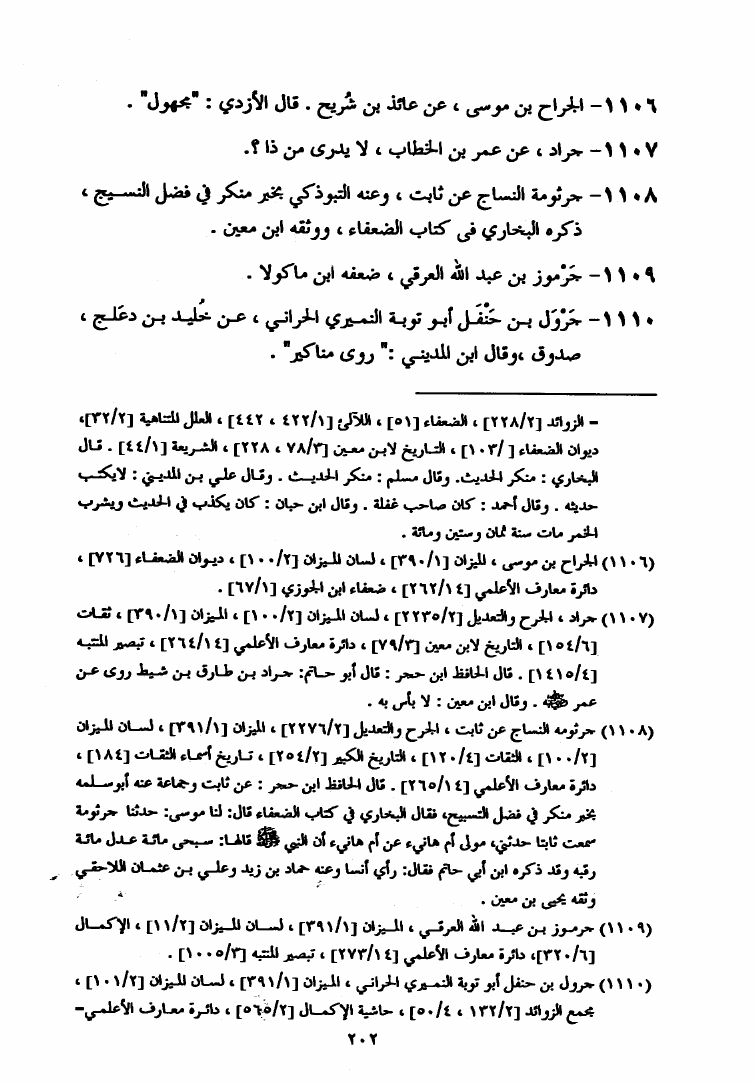 ١١٠٦- الجراح بن موسى ، عن عائذ بن شُريح . قال الأزدي : "مجهول" .
١١٠٧- جراد ، عن عمر بن الخطاب ، لا يدرى من ذا ؟.
١١٠٨- جرثومة النساج عن ثابت ، وعنه التبوذكي بخبر منكر في فضل النسيج ،
ذكره البخاري فى كتاب الضعفاء ، ووثقه ابن معين .
١١٠٩- جَرْموز بن عبد الله العرقي ، ضعفه ابن ماكولا .
١١١٠- جَرْوَل بـن حَنْفَـل أبـو توبـة النمـيري الحرانـي ، عـن خُليـد بـن دعَلـج ،
صدوق ،وقال ابن المديني :" روى مناكير" .
- الزوائد [٢٢٨/٢] ، الضعفاء [٥١] ، اللآلئ [٤٢٢/١ ، ٤٤٢] ، العلل المتناهية [٣٢/٢]،
ديوان الضعفاء [ /١٠٣] ، التـاريخ لابـن معين [٧٨/٣ ، ٢٢٨] ، الشريعة [٤٤/١] . قـال
البخاري : منكر الحديث. وقال مسلم : منكر الحديـث . وقـال علـي بـن المديني : لايكتـب
حديثه . وقال أحمد : كان صاحب غفلة . وقال ابن حبان : كان يكذب في الحديث ويشرب
الخمر مات سنة ثمان وستين ومائة .
(١١٠٦) الجراح بن موسى ، الميزان [٣٩٠/١] ، لسان المـيزان [١٠٠/٢] ، ديـوان الضعفـاء [٧٢٦] ،
دائرة معارف الأعلمي [٢٦٢/١٤] ، ضعفاء ابن الجوزي [٦٧/١] .
(١١٠٧) جراد ، الجرح والتعديل [٢٢٣٥/٢] ، لسان المـيزان [١٠٠/٢] ، المـيزان [٣٩٠/١] ، ثقـات
[١٥٤/٦] ، التاريخ لابن معين [٧٩/٣] ، دائرة معارف الأعلمي [٢٦٤/١٤] ، تبصير المنتبـه
[١٤١٥/٤] . قال الحافظ ابن حجر : قال أبو حـاتم: جـراد بـن طـارق بـن شـيط روى عـن
عمر ﷺ . وقال ابن معين : لا بأس به .
(١١٠٨) جرثومه النساج عن ثابت ، الجرح والتعديل [٢٢٧٦/٢] ، الميزان [٣٩١/١] ، لسـان المـيزان
[١٠٠/٢] ، الثقات [١٢٠/٤] ، التاريخ الكبير [٢٥٤/٢] ، تـاريخ أسمـاء الثقـات [١٨٤] ،
دائرة معارف الأعلمي [٢٦٥/١٤] . قال الحافظ ابن حجر : عن ثابت وجماعة عنه أبوسـلمه
بخبر منكر في فضل التسبيح، فقال البخاري في كتاب الضعفاء قال: لنا موسى: حدثنا جرثومة
سمعت ثابتا حدثني، مولى أم هانيء عن أم هانيء أن النبي ﷺ قالهـا: سـبحى مائـة عـدل مائـة
رقبه وقد ذكره ابن أبي حاتم فقال: رأي أنسا وعنه حماد بن زيد وعلـي بـن عثمـان اللاحقـي
وثقه يحيى بن معين .
(١١٠٩) جرمـوز بـن عبـد الله العرقـي ، المـيزان [٣٩١/١] ، لسـان المـيزان [١١/٢] ، الإكمـال
[٣٢٠/٦]، دائرة معارف الأعلمي [٢٧٣/١٤] ، تبصير المنتبه [١٠٠٥/٣] .
(١١١٠) جرول بن حنفل أبو توبة النمـيري الحراني ، المـيزان [٣٩١/١] ، لسـان المـيزان [١٠١/٢] ،
مجمع الزوائد [١٣٢/٢ ، ٥٠/٤] ، حاشية الإكمـال [٥٦٥/٢] ، دائـرة معـارف الأعلمـي-
٢٠٢